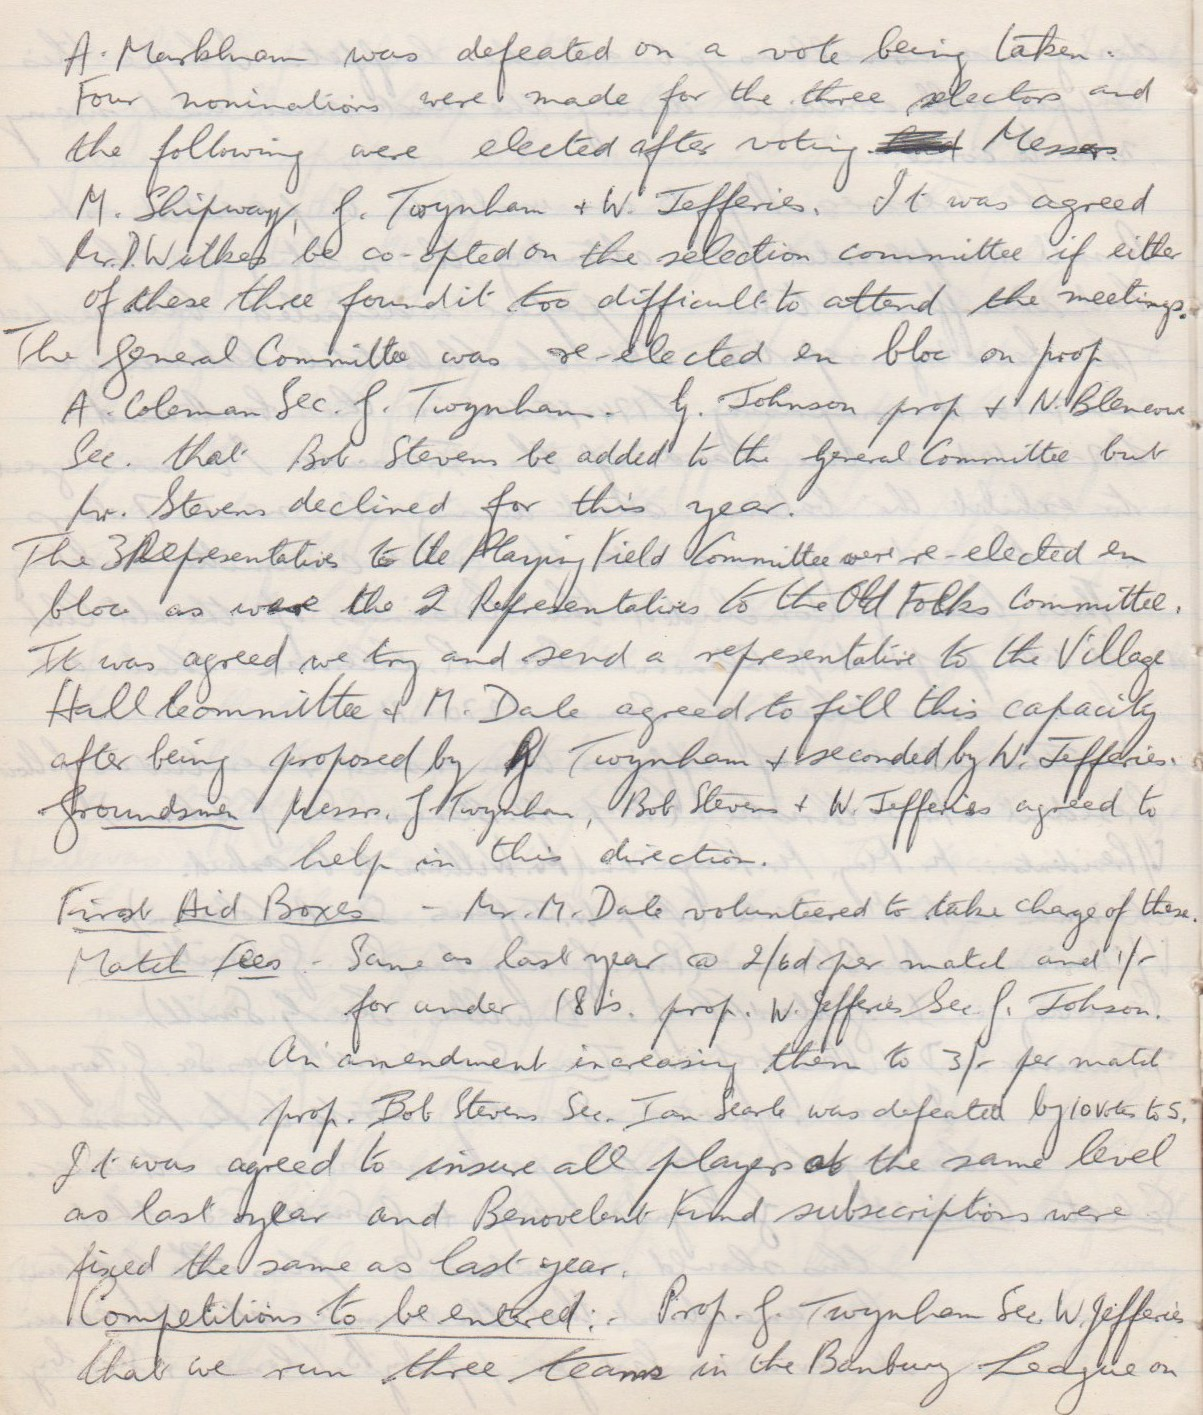 A. Markham was defeated on a vote being taken.
Four nominations were made for the three selectors and
the following were elected after voting Messrs
M. Shipway, J. Twynham + W. Jefferies. It was agreed
Mr. D. Wilkes be co-opted on the selection committee if either
of these three found it too difficult to attend the meetings.
The General Committee was re-elected en bloc on prop
A. Coleman Sec. J. Twynham. G. Johnson prop + N. Blencowe
Sec. that Bob Stevens be added to the General Committee but
Mr. Stevens declined for this year.
The 3 Representatives to the Playing Field Committee were re-elected en
bloc as were the 2 Representatives to the Old Folks Committee.
It was agreed we try and send a representative to the Village
Hall Committee + M. Dale agreed to fill this capacity
after being proposed by J Twynham + seconded by W. Jefferies.
Groundsmen Messrs. J Twynham, Bob Stevens + W. Jefferies agreed to
help in this direction.
First Aid Boxes - Mr. M. Dale volunteered to take charge of these.
Match fees - Same as last year @ 2/6d per match and 1/-
for under 18's. prop. W. Jefferies Sec. G. Johson.
An amendment increasing them to 3/- per match
prop. Bob Stevens Sec. Ian Searle was defeated by 10 votes to 5.
It was agreed to insure all players at the same level
as last year and Benovelent Fund subscriptions were
fixed the same as last year.
Competitions to be entered:- Prop. J. Twynham Sec. W. Jefferies
that we run three teams in the Banbury League on